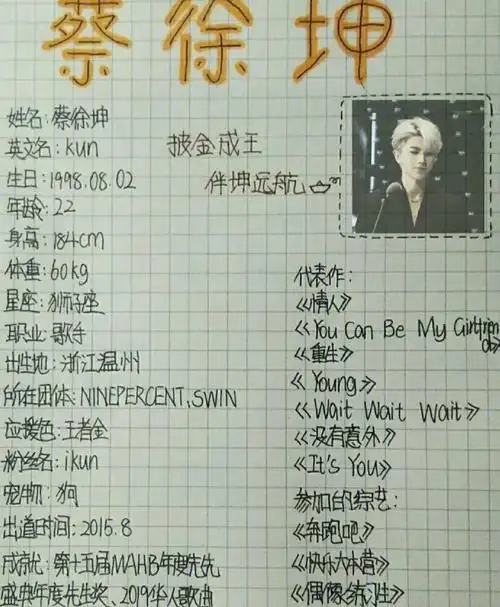 蔡徐坤
姓名:蔡徐坤
英文名:kun
生日:1998.08.02
年龄:22
身高:184cm
体重:60kg
星座:狮子座
职业:歌手
出生地:浙江温州
所在团体:NINEPERCENT、SWIN
应援色:王者金
粉丝名:ikun
宠物:狗
出道时间:2015.8
成就:第十五届MAHB年度先先
盛典年度先生奖、2019华人歌曲
披金成王
伴坤远航
代表作:
《情人》
《You Can Be My Girlfrien
d》
《重生》
《Young》
《Wait Wait Wait》
《没有意外》
《It's You》
参加的综艺:
《奔跑吧》
《快乐大本营》
《偶像练习生》